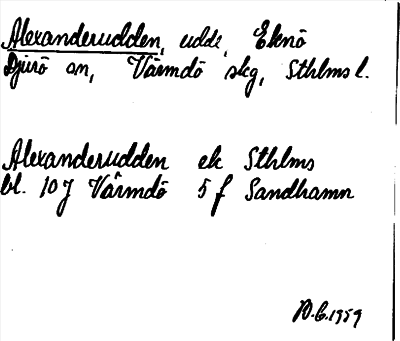 Alexanderudden, udde, Eknö
Djurö sn, Värmdö skg, Sthlms l.
Alexanderudden ek Sthlms
bl. 10J Värmdö 5 f Sandhamn
1959